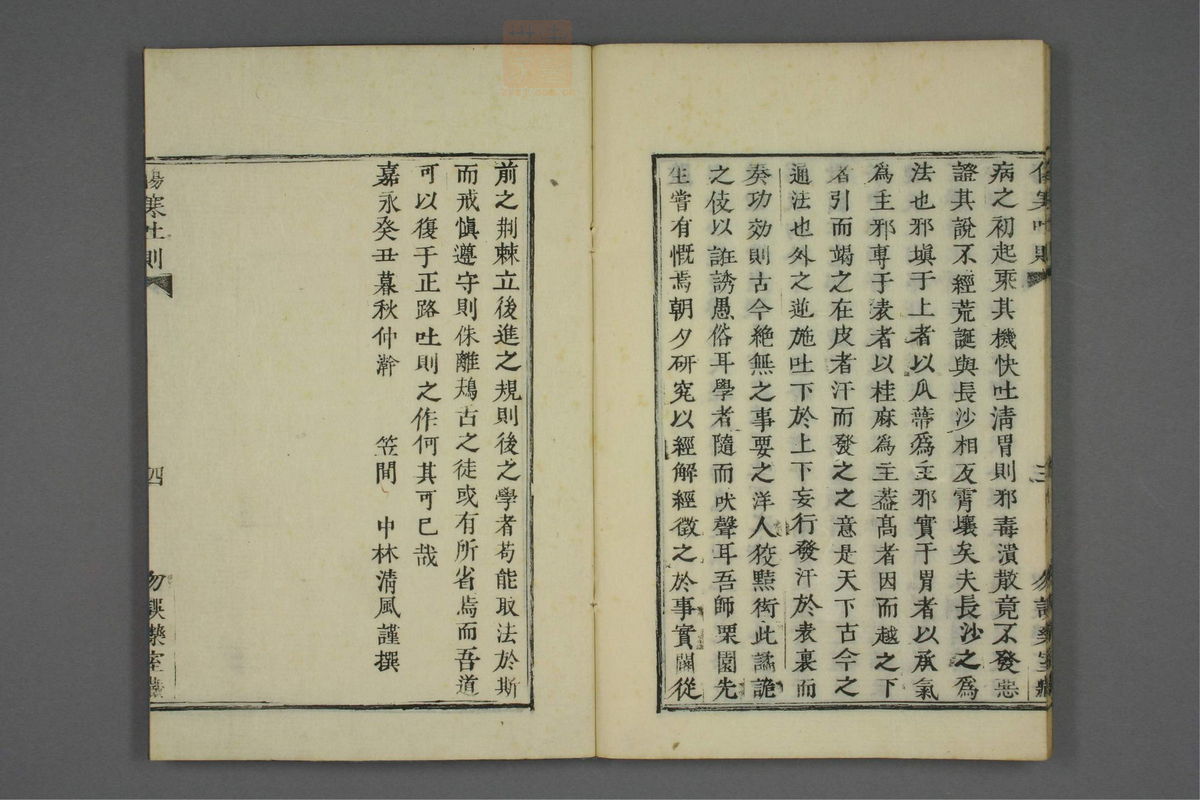 傷寒吐則
三
勿誤藥室藏
病之初起乘其機快吐淸胃則邪毒潰散竟不發惡
證其說不經荒誕與長沙相反霄壤矣夫長沙之爲
法也邪塡于上者以瓜蒂爲主邪實于胃者以承氣
爲主邪專于表者以桂麻爲主葢髙者因而越之下
者引而竭之在皮者汗而發之之意是天下古今之
通法也外之迆施吐下於上下妄行發汗於表裏而
奏功効則古今絶無之事要之洋人狡黠衒此譎詭
之伎以誑誘愚俗耳學者隨而吠聲耳吾師栗園先
生嘗有慨焉朝夕硏究以經解經徵之於事實闢從
前之荆棘立後進之規則後之學者苟能取法於斯
而戒愼遵守則侏離鴂古之徒或有所省焉而吾道
可以復于正路吐則之作何其可已哉
嘉永癸丑暮秋仲澣　笠間　中林淸風謹撰
傷寒吐則
四
勿誤藥室藏